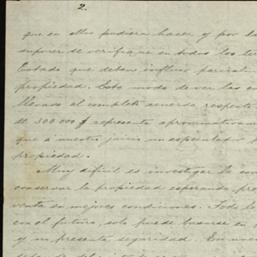 2.
que en ellos pudiera hacer y por la
suponer se verifique en todos los ter
Estado que deben influir
propiedad. Este modo de ver las co
llevado al completo acuerdo respecto
300.000 $ representa aproximativam
que á nuestro juicio un especulador
propiedad.
Muy difícil es investigar la con
conservar la propiedad esperando pro
venta en mejores condiciones. Todo lo
con el futuro, solo puede basarse en
y un presente seguridad. En nues